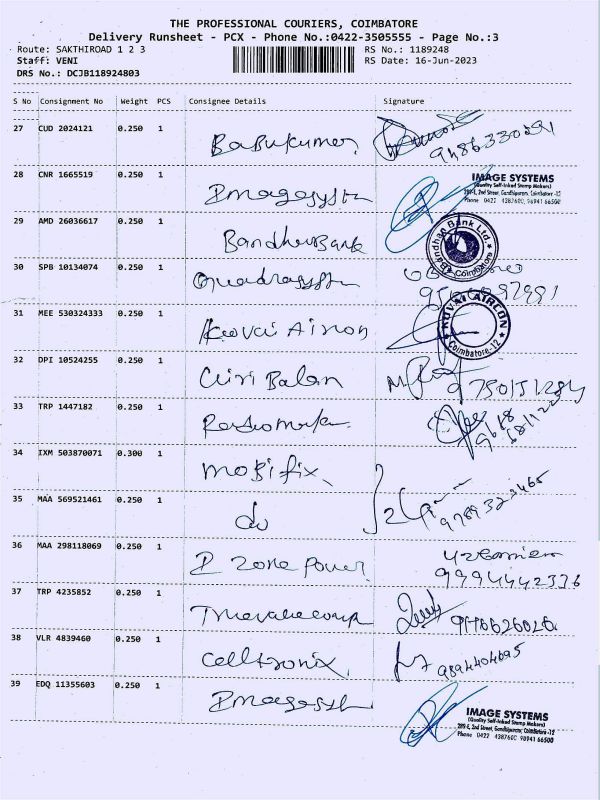 THE PROFESSIONAL COURIERS, COIMBATORE
Delivery Runsheet - PCX - Phone No.:0422-3505555 - Page No.:3
Route: SAKTHIROAD 1 2 3 RS No.: 1189248
Staff: VENI RS Date: 16-Jun-2023
DRS No.: DCJB118924803
S No Consignment No Weight PCS Consignee Details Signature
27 CUD 2024121 0.250 1 Babukumar 9486330291
28 CNR 1665519 0.250 1 Imagesystm
IMAGE SYSTEMS
(Quality Self-Inked Stamp Makers)
2nd Street, Gandhipuram, Coimbatore -12
Phone 0422 4387600, 96941 66500
29 AMD 26036617 0.250 1 Bandhanbank
Bandhan Bank Ltd.
Coimbatore
30 SPB 10134074 0.250 1 Quadrasystm
31 MEE 530324333 0.250 1 Kovai Aircon
KOVAI AIRCON
Coimbatore-12
32 DPI 10524255 0.250 1 Giri Balan
33 TRP 1447182 0.250 1
34 IXM 503870071 0.300 1 Mobifix
35 MAA 569521461 0.250 1 do
36 MAA 298118069 0.250 1 I Zone Power 9994442376
37 TRP 4235852 0.250 1
38 VLR 4839460 0.250 1 Celltronix 9894404695
39 EDQ 11355603 0.250 1 Imagesystm
IMAGE SYSTEMS
(Quality Self-Inked Stamp Makers)
2nd Street, Gandhipuram, Coimbatore -12
Phone 0422 4387600 96941 66500